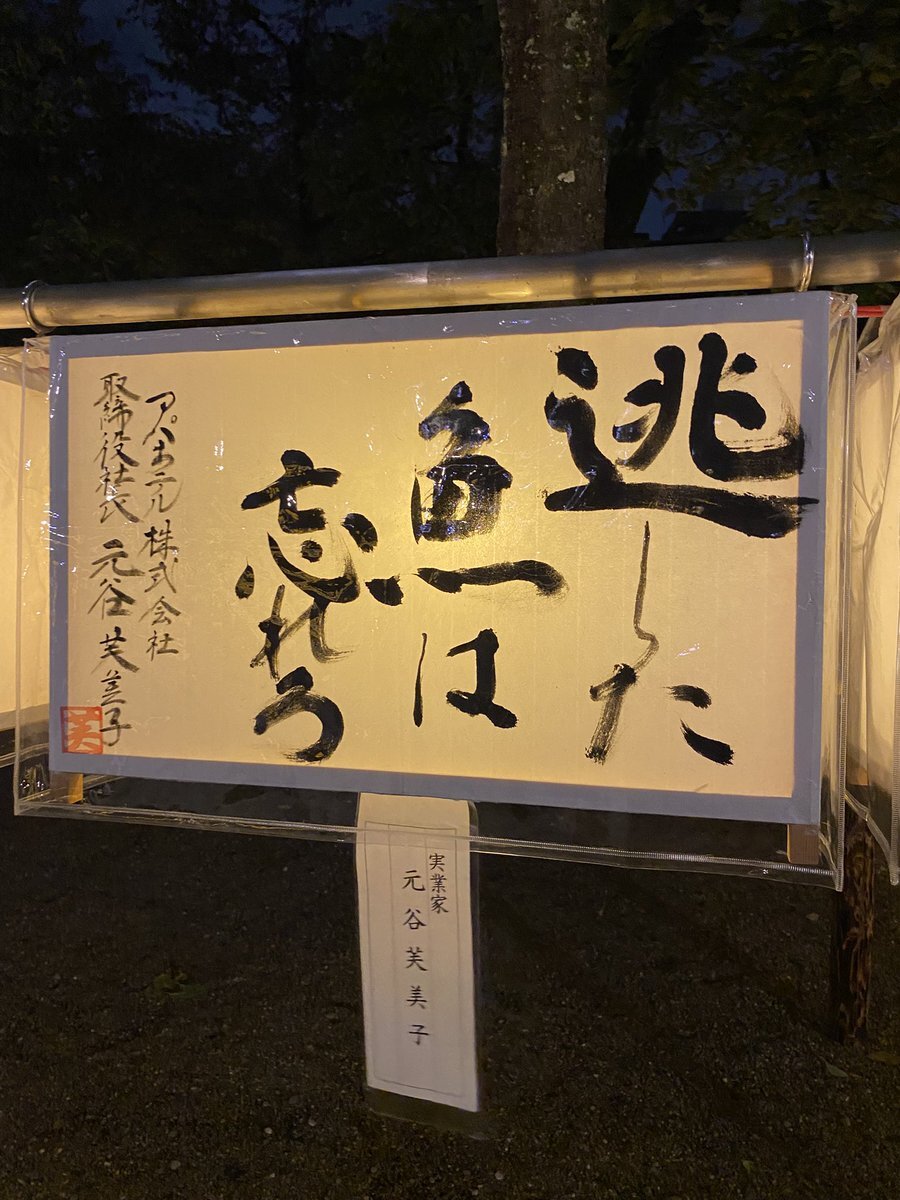 逃した
魚は
忘れろ
アパホテル株式会社
取締役社長 元谷芙美子
芙
実業家
元谷芙美子